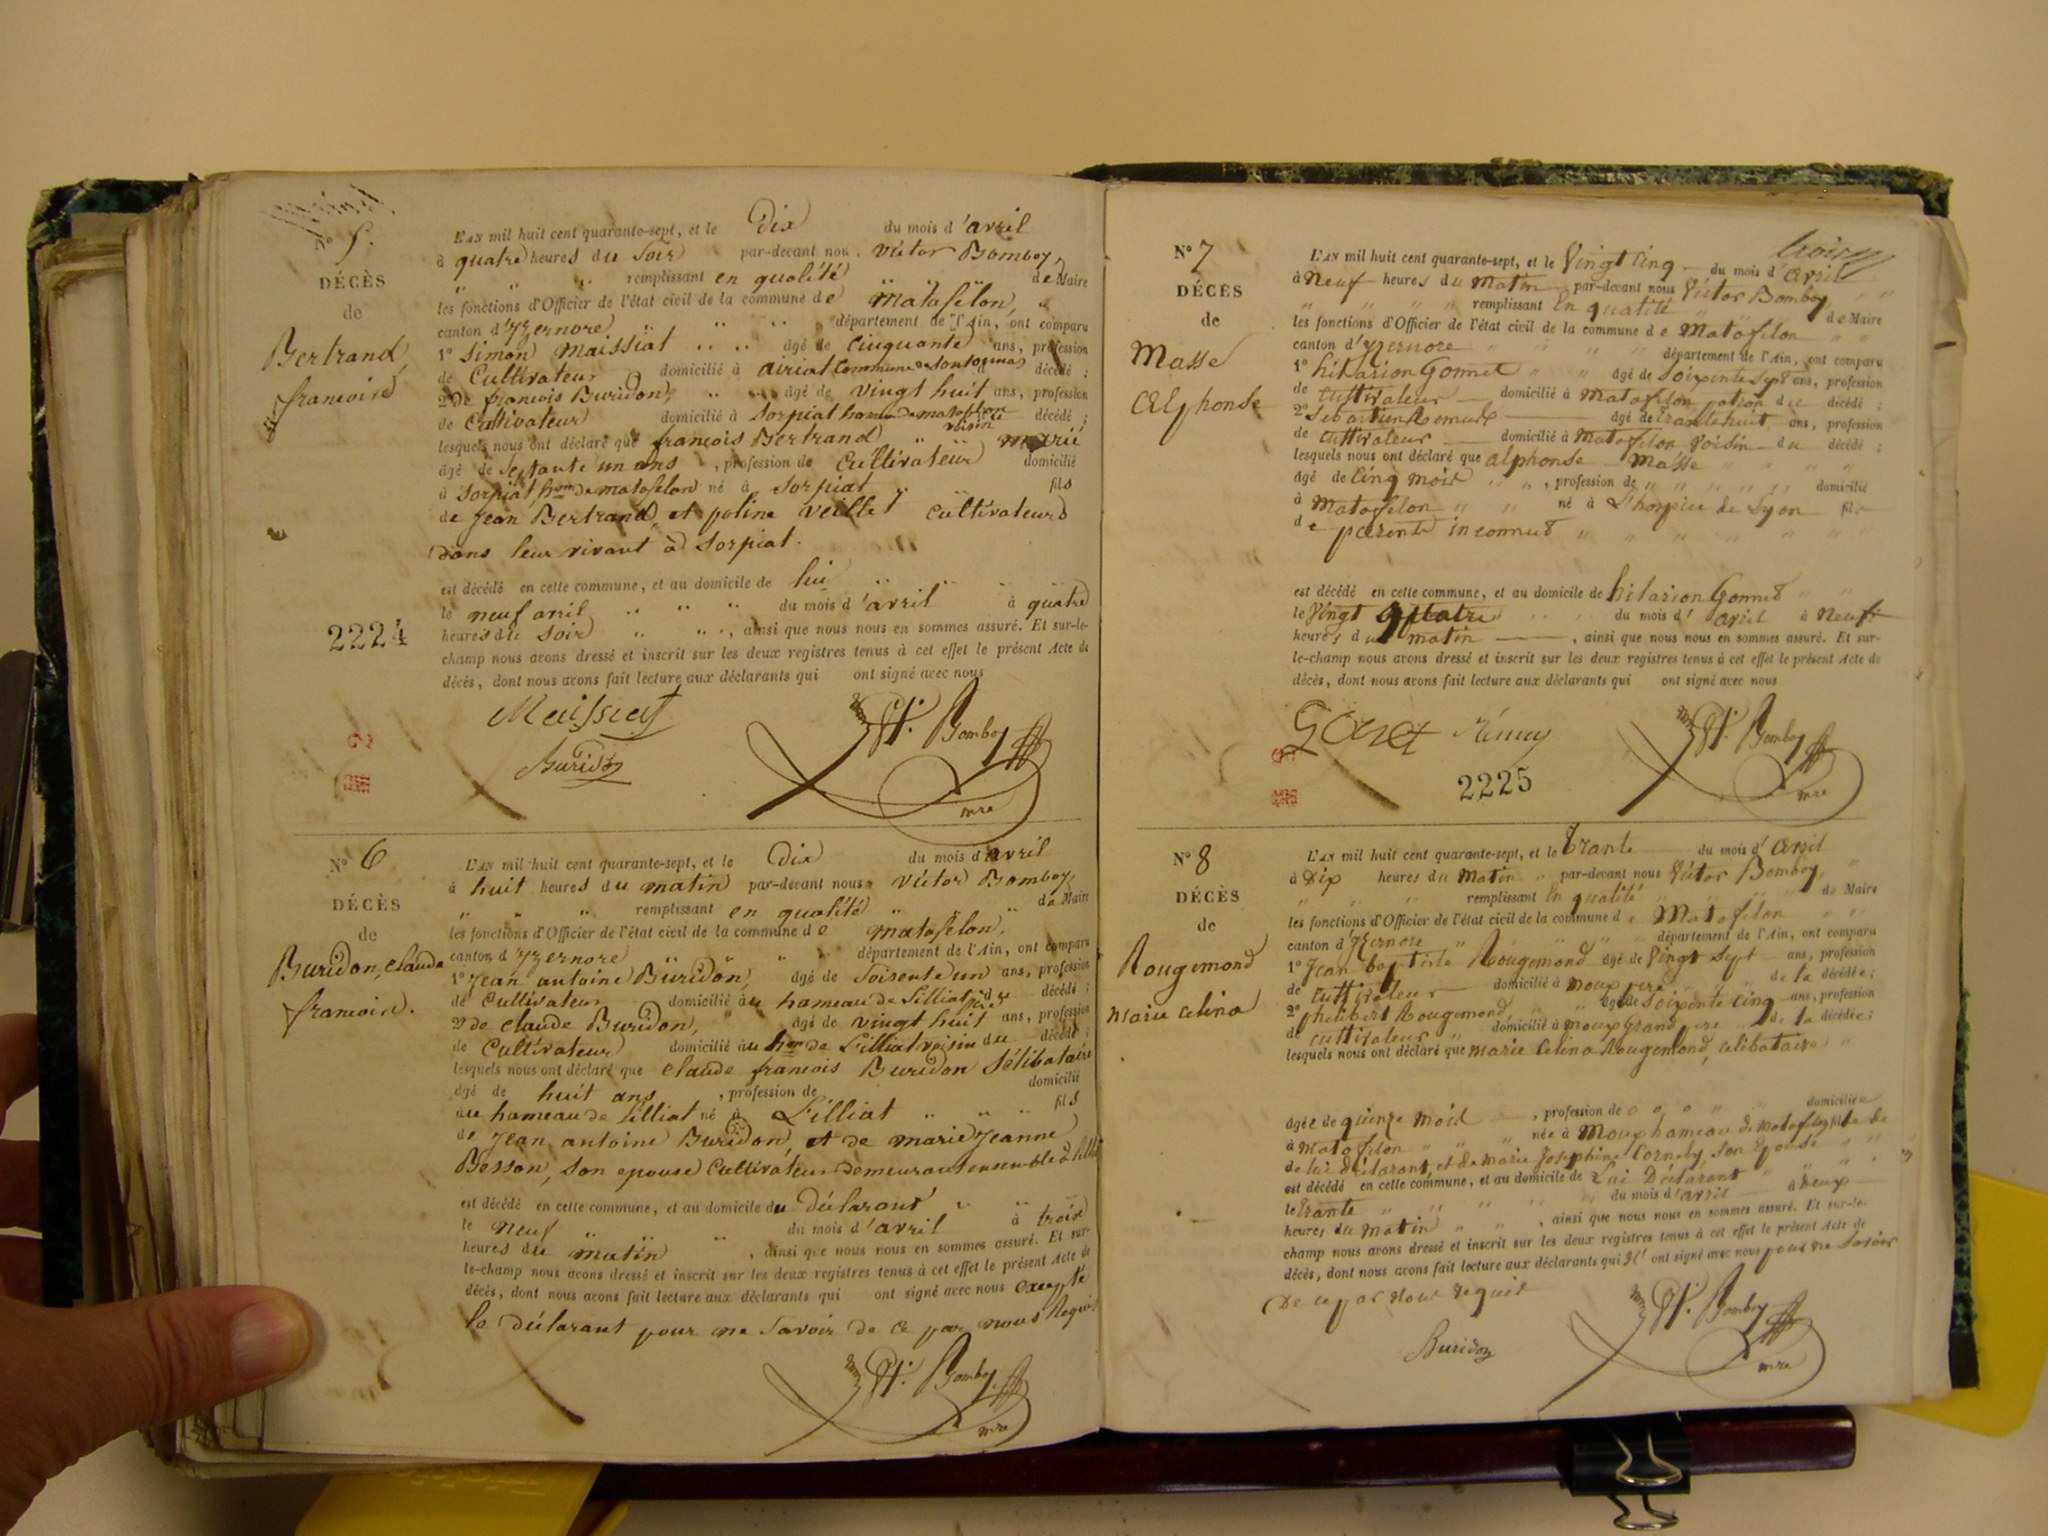 N° 5.
DÉCÈS
de
Bertrand
francois
L'AN mil huit cent quarante-sept, et le Dix du mois d'avril
à quatre heures du Soir par-devant nou Victor Bomboy,
remplissant en qualité de Maire
les fonctions d'Officier de l'état civil de la commune de Matafelon,
canton d'Yzernore département de l'Ain, ont comparu
1° Simon Maissiat âgé de Cinquante ans, profession
de Cultivateur domicilié à airiat Commune de Sontonnas décédé ;
2° De francois Buridon, âgé de vingt huit ans, profession
de Cultivateur domicilié à Sorpiat hameau de matafelon voisin décédé ;
lesquels nous ont déclaré que françois Bertrand marié
âgé de Septante un ans , profession de Cultivateur domicilié
à Sorpiat, h.au de matafelon né à Sorpiat fils
de jean Bertrand, et poline Veillet Cultivateurs
dans leur vivant à Sorpiat.
est décédé en cette commune, et au domicile de lui
le neuf avril du mois d'avril à quatre
heures du Soir , ainsi que nous nous en sommes assuré. Et sur-le-
champ nous avons dressé et inscrit sur les deux registres tenus à cet effet le présent Acte de
décès, dont nous avons fait lecture aux déclarants qui ont signé avec nous
2224
Maissiat
Buridon
Vt. Bomboy
mre
N° 6
DÉCÈS
de
Buridon, Claude
francois.
L'AN mil huit cent quarante-sept, et le Dix du mois d'avril
à huit heures du matin par-devant nous Victor Bomboy,
remplissant en qualité de Maire
les fonctions d'Officier de l'état civil de la commune de matafelon,
canton d'Yzernore département de l'Ain, ont comparu
1° Jean antoine Buridon, âgé de Soisente un ans, profession
de Cultivateur domicilié au hameau de Lilliat père du décédé ;
2° de claude Buridon, âgé de vingt huit ans, profession
de Cultivateur domicilié au h.au de Lilliat voisin du décédé ;
lesquels nous ont déclaré que claude francois Buridon Sélibataire
âgé de huit ans , profession de domicilié
au hameau de Lilliat né à Lilliat fils
de Jean antoine Buridon, et de marie Jeanne
Besson, son epouse Cultivateur demeurant ensemble à Lilliat
est décédé en cette commune, et au domicile du Déclarant
le neuf du mois d'avril à trois
heures du matin , ainsi que nous nous en sommes assuré. Et sur-
le-champ nous avons dressé et inscrit sur les deux registres tenus à cet effet le présent Acte de
décès, dont nous avons fait lecture aux déclarants qui ont signé avec nous excepté
le déclarant pour ne Savoir de ce par nous Requis
Vt. Bomboy
mre
trois
N° 7
DÉCÈS
de
Masse
Alphonse
L'AN mil huit cent quarante-sept, et le Vingt Cinq du mois d'avril
à Neuf heures du Matin par-devant nous Victor Bomboy
remplissant En qualité de Maire
les fonctions d'Officier de l'état civil de la commune de Matafelon
canton d'yzernore département de l'Ain, ont comparu
1° hilarion Gonnet âgé de Soixente Sept ans, profession
de Cuttivateur domicilié à Matafelon décédé ;
2° âgé de trante huit ans, profession
de Cuttivateur domicilié à Matafelon Voisin du décédé ;
lesquels nous ont déclaré que alphonse Masse
âgé de Cinq mois , profession de domicilié
à Matafelon né à L'hospice de Lyon fils
de parents inconnus
est décédé en cette commune, et au domicile de hilarion Gonnet
le Vingt quatre du mois d'avril à Neuf
heures du matin , ainsi que nous nous en sommes assuré. Et sur-
le-champ nous avons dressé et inscrit sur les deux registres tenus à cet effet le présent Acte de
décès, dont nous avons fait lecture aux déclarants qui ont signé avec nous
Gonet rémuy
Vt. Bomboy
mre
2225
N° 8
DÉCÈS
de
Rougemond
Marie Celina
L'AN mil huit cent quarante-sept, et le trante du mois d'avril
à Dix heures du Matin par-devant nous Victor Bomboy,
remplissant En qualité de Maire
les fonctions d'Officier de l'état civil de la commune de Matafelon
canton d'Yzernore département de l'Ain, ont comparu
1° Jean baptiste Rougemond âgé de Vingt Sept ans, profession
de Cuttivateur domicilié à Moux pere de la décédée ;
2° phelibert Rougemond, âgé de Soixente Cinq ans, profession
de Cuttivateur domicilié à Moux Grand pere de la décédée ;
lesquels nous ont déclaré que Marie Celina Rougemond, Celibataire
âgée de quinze mois , profession de domiciliée
à Matafelon née à Moux hameau de Matafelon fille de
de lui Déclarant, et de Marie Josephine Cornety son Epouse
est décédé en cette commune, et au domicile de Lui Déclarant
le trante du mois d'avril à Deux
heures du Matin , ainsi que nous nous en sommes assuré. Et sur-le-
champ nous avons dressé et inscrit sur les deux registres tenus à cet effet le présent Acte de
décès, dont nous avons fait lecture aux déclarants qui N' ont signé avec nous pour ne Savoir
De ce par Nous Requis
Buridon
Vt. Bomboy
mre